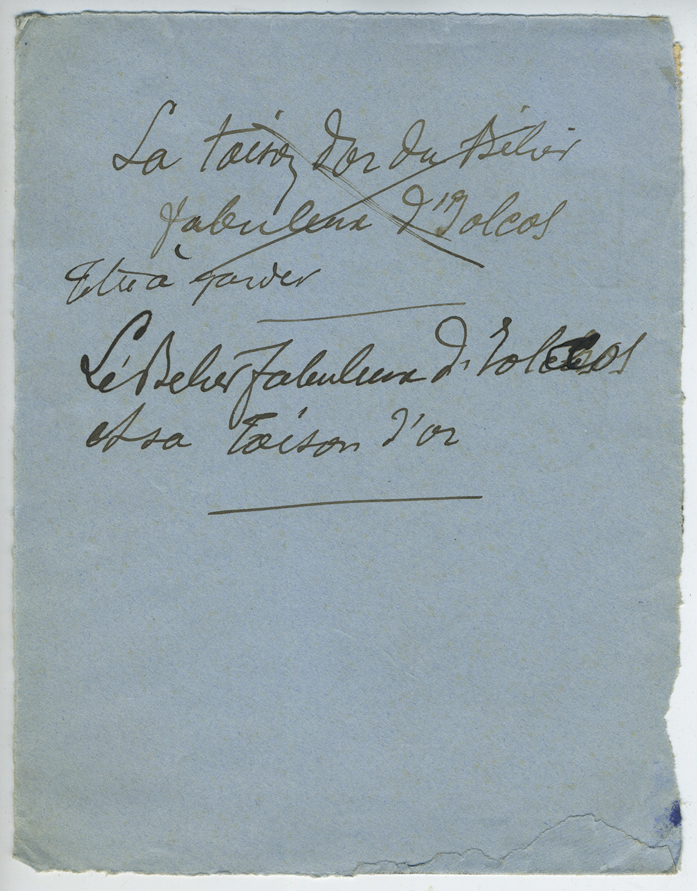 La toison d'or du Bélier
fabuleux d'Iolcos
Titre à garder
Le Belier fabuleux d'Iolcos
et sa toison d'or